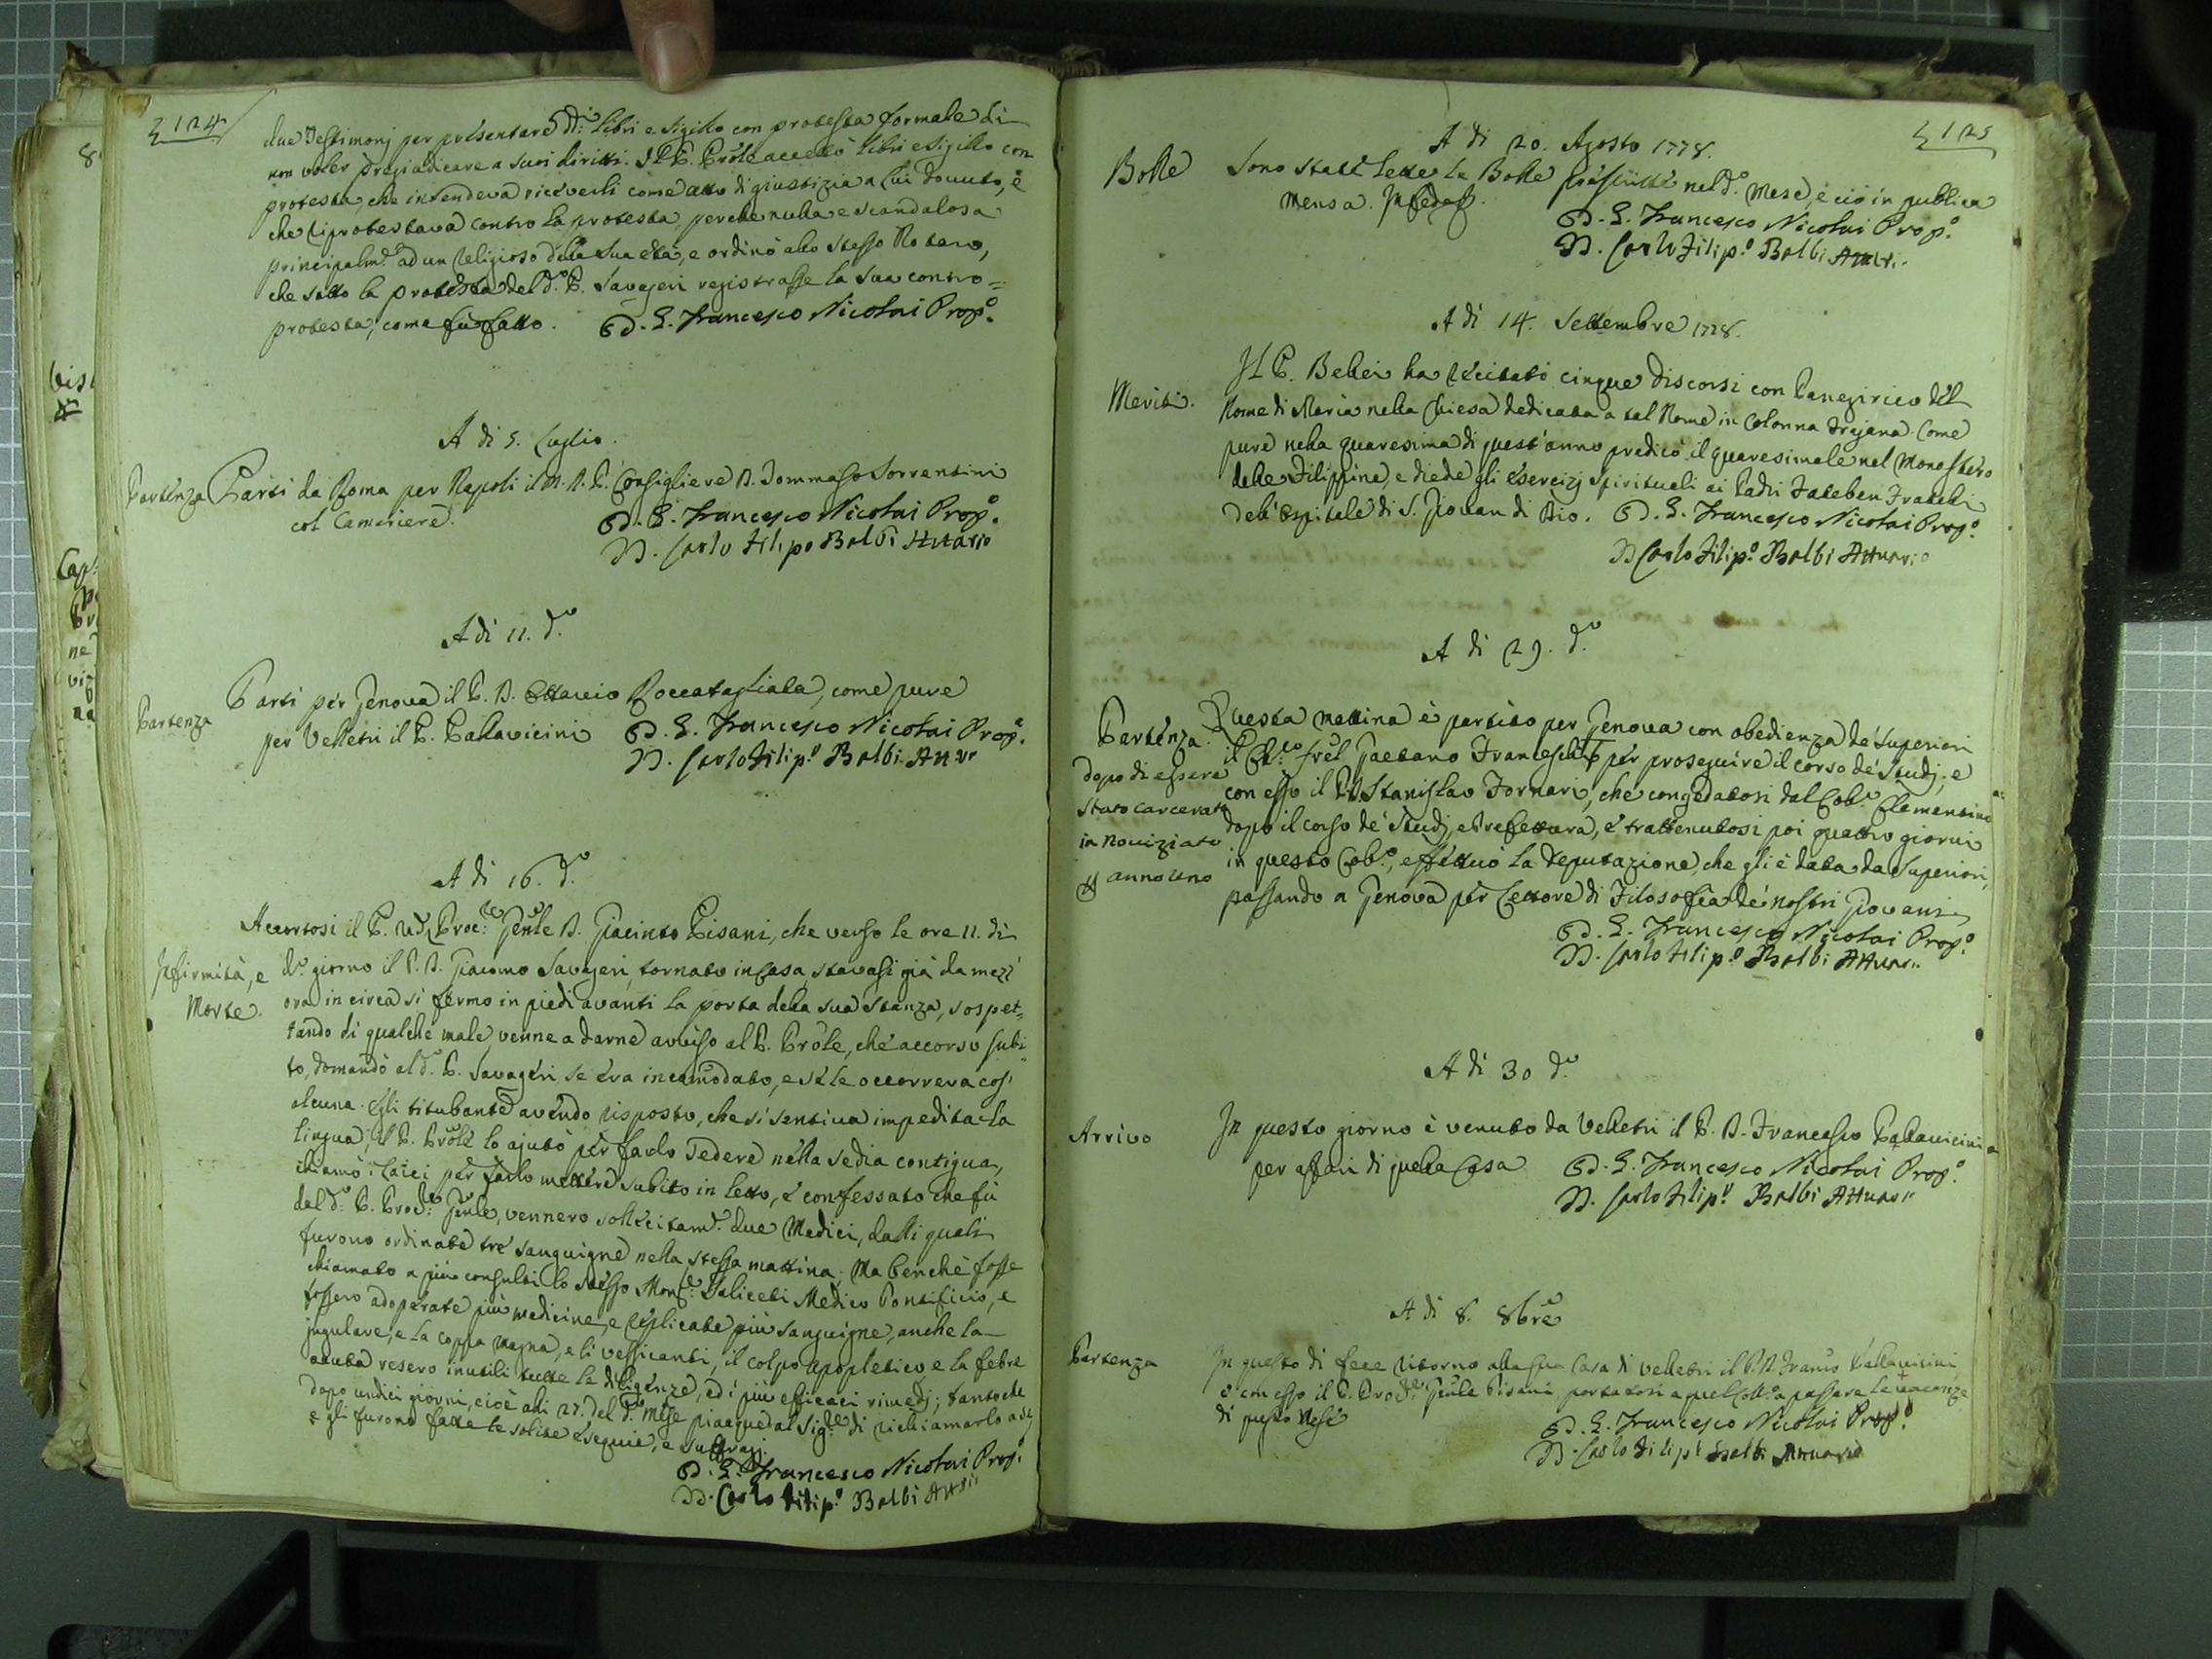 124
due Testimonj per presentare d.i libri e sigillo con protesta formale di
non voler pregiudicare a suoi diritti. Il P. Prõle accettò libri e sigillo con
protesta, che intendeva riceverli come atto di giustizia a lui dovuto, e
che riprotestava contro la protesta, perche nulla e scandalosa
principalm.e ad un Religioso della sua età, e ordinò allo stesso Notaro,
che sotto la protesta del d.o P. Savageri registrasse la sua contro=
protesta, come fù fatto. D. G. Francesco Nicolai Prop.o
A di 5. Luglio.
Partenza
Partì da Roma per Napoli il M. R. P. Consigliere D. Tommaso Sorrentini
col Cameriere.
D. G. Francesco Nicolai Prop.o
D. Carlo Filipo Balbi Attuario
A di 11. d.o
Partenza
Partì per Genova il P. D. Ottavio Roccatagliata, come pure
per Velletri il P. Pallavicini
D. G. Francesco Nicolai Prop.o
D. Carlo Filip.o Balbi Att.r
A di 16. d.o
Infirmità, e
Morte.
Accortosi il P. Proc.re Gen̄le D. Giacinto Pisani, che verso le ore 11. di
d.o giorno il P. D. Giacomo Savageri, tornato in Casa, stavasi già da mezz'
ora in circa si fermo in piedi avanti la porta della sua stanza, sospet=
tando di qualche male, venne a darne avviso al P. Prõle, che accorso subi=
to, domandò al d.o P. Savageri se era incom̃odato, e se le occorreva cos'
alcuna. Egli titubante avendo risposto, che si sentiva impedita la
lingua, il P. Prõle lo ajutò per farlo sedere nella sedia contigua,
chiamò i laici per farlo mettere subito in letto, e confessato che fù
dal d.o P. Proc.re Gen̄le, vennero sollecitam.e due Medici, dalli quali
furono ordinate trè sanguigne nella stessa mattina; Ma benchè fosse
chiamato a più consulti lo stesso Mons.re Saliceti Medico Pontificio, e
fossero adoperate più medicine, e replicate più sanguigne, anche la
jugulare, e la coppa magna, e li vessicanti, il colpo apopletico, e la febre
acuta resero inutili tutte le diligenze, ed i più efficaci rimedj; tantoche
dopo undici giorni, cioè alli 27. del d.o Mese piacque al Sig.re di richiamarlo a se,
e gli furono fatte le solite esequie, e suffragj.
D. G. Francesco Nicolai Prop.o
D. Carlo Filip.o Balbi Att.o
125
A di 20. Agosto 1778.
Bolle
Sono state lette le Bolle prescritte nel d.o Mese, e ciò in publica
mensa. In fede &.
D. G. Francesco Nicolai Prop.o
D. Carlo Filip.o Balbi Attu.
A di 14. Settembre 1778.
Meriti.
Il P. Bellei ha recitati cinque Discorsi con Panegirico del
Nome di Maria nella Chiesa dedicata a tal Nome in Colonna Trajana. Come
pure nella quaresima di quest'anno predicò il quaresimale nel Monastero
delle Filippine, e diede gli esercizj spirituali ai Padri Fateben Fratelli
dell'Ospitale di S. Giovan di Dio. D. G. Francesco Nicolai Prop.o
D. Carlo Filip.o Balbi Attuario
A di 29. d.o
Partenza.
dopo di essere
stato carcerato
in noviziato
anno uno
Questa mattina è partito per Genova con obedienza de' Superiori
il Ch.co frel Gaetano Franceschi per proseguire il corso de' Studj; e
con esso il P. D. Stanislao Fornari, che congedatosi dal Coll.o Clementino
dopo il corso de' Studj, e Prefettura, e trattenutosi poi quattro giorni
in questo Coll.o, effettuò la deputazione, che gli è data da Superiori,
passando a Genova per Lettore di Filosofia de' nostri Giovani
D. G. Francesco Nicolai Prop.o
D. Carlo Filip.o Balbi Attuar.
A di 30 d.o
Arrivo
In questo giorno è venuto da Velletri il P. D. Francesco Pallavicini
per affari di quella Casa
D. G. Francesco Nicolai Prop.o
D. Carlo Filip.o Balbi Attuar.
A di 8. 8bre
Partenza
In questo di fece ritorno alla sua Casa di Velletri il P. D. Franc.o Pallavicini
e con esso il P. Proc.re Gen̄le Pisani, portatosi a quel Coll.o a passare le vacanze
di questo Mese
D. G. Francesco Nicolai Prop.o
D. Carlo Filip.o Balbi Attuario